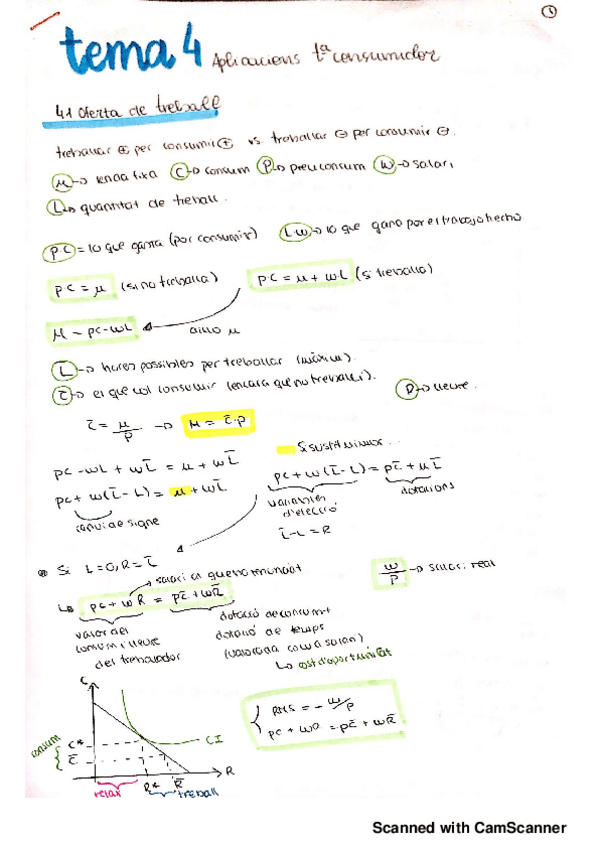 1
tema 4 Aplicacions tª consumidor
4.1 Oferta de treball
treballar + per consumir + vs. treballar - per consumir -.
M -> renda fixa C -> consum P -> preu consum W -> salari
L -> quantitat de treball.
PC = lo que gasta (por consumir) LW -> lo que gano por el trabajo hecho
PC = M (si no treballa) PC = M + WL (si treballa)
M = PC - WL aïllo M
L̄ -> hores possibles per treballar (màxim).
C̄ -> el que vol consumir (encara que no treballi). R -> lleure.
C̄ = M/P -> M = C̄·P
Si substituïm ...
PC - WL + WL̄ = M + WL̄
PC + W(L̄ - L) = PC̄ + WL̄
PC + W(L̄ - L) = M + WL̄
variables d'elecció
dotacions
canvi de signe
L̄ - L = R
* Si L = 0, R = L̄
salari al que he renunciat
W/P -> salari real
PC + WR = PC̄ + WR̄
valor del consum i lleure del treballador
dotació de consum + dotació de temps (valorada com a salari)
-> cost d'oportunitat
C
RMS = - W/P
PC + WR = PC̄ + WR̄
consum
C*
C̄
CI
R
R* R̄
relax treball
Scanned with CamScanner